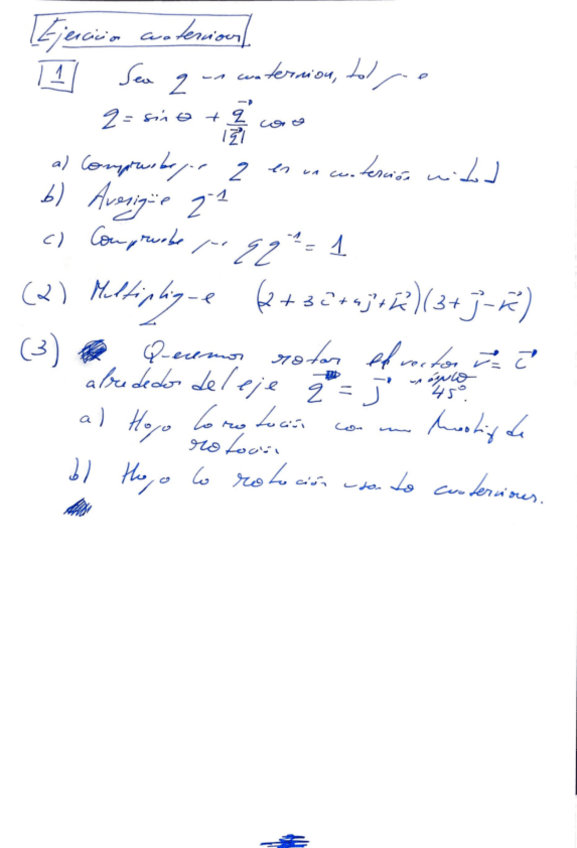 Ejercicios cuaterniones
1 Sea q un cuaternion, tal que
q = sin θ + q⃗/|q⃗| cos θ
a) Compruebe que q es un cuaternión unidad
b) Averigüe q⁻¹
c) Compruebe que qq⁻¹ = 1
(2) Multiplique (2 + 3i⃗ + 4j⃗ + k⃗)(3 + j⃗ − k⃗)
(3) Queremos rotar el vector v⃗ = i⃗
alrededor del eje q⃗ = j⃗ un ángulo 45°.
a) Haga la rotación con una matriz de
rotación
b) Haga la rotación usando cuaterniones.